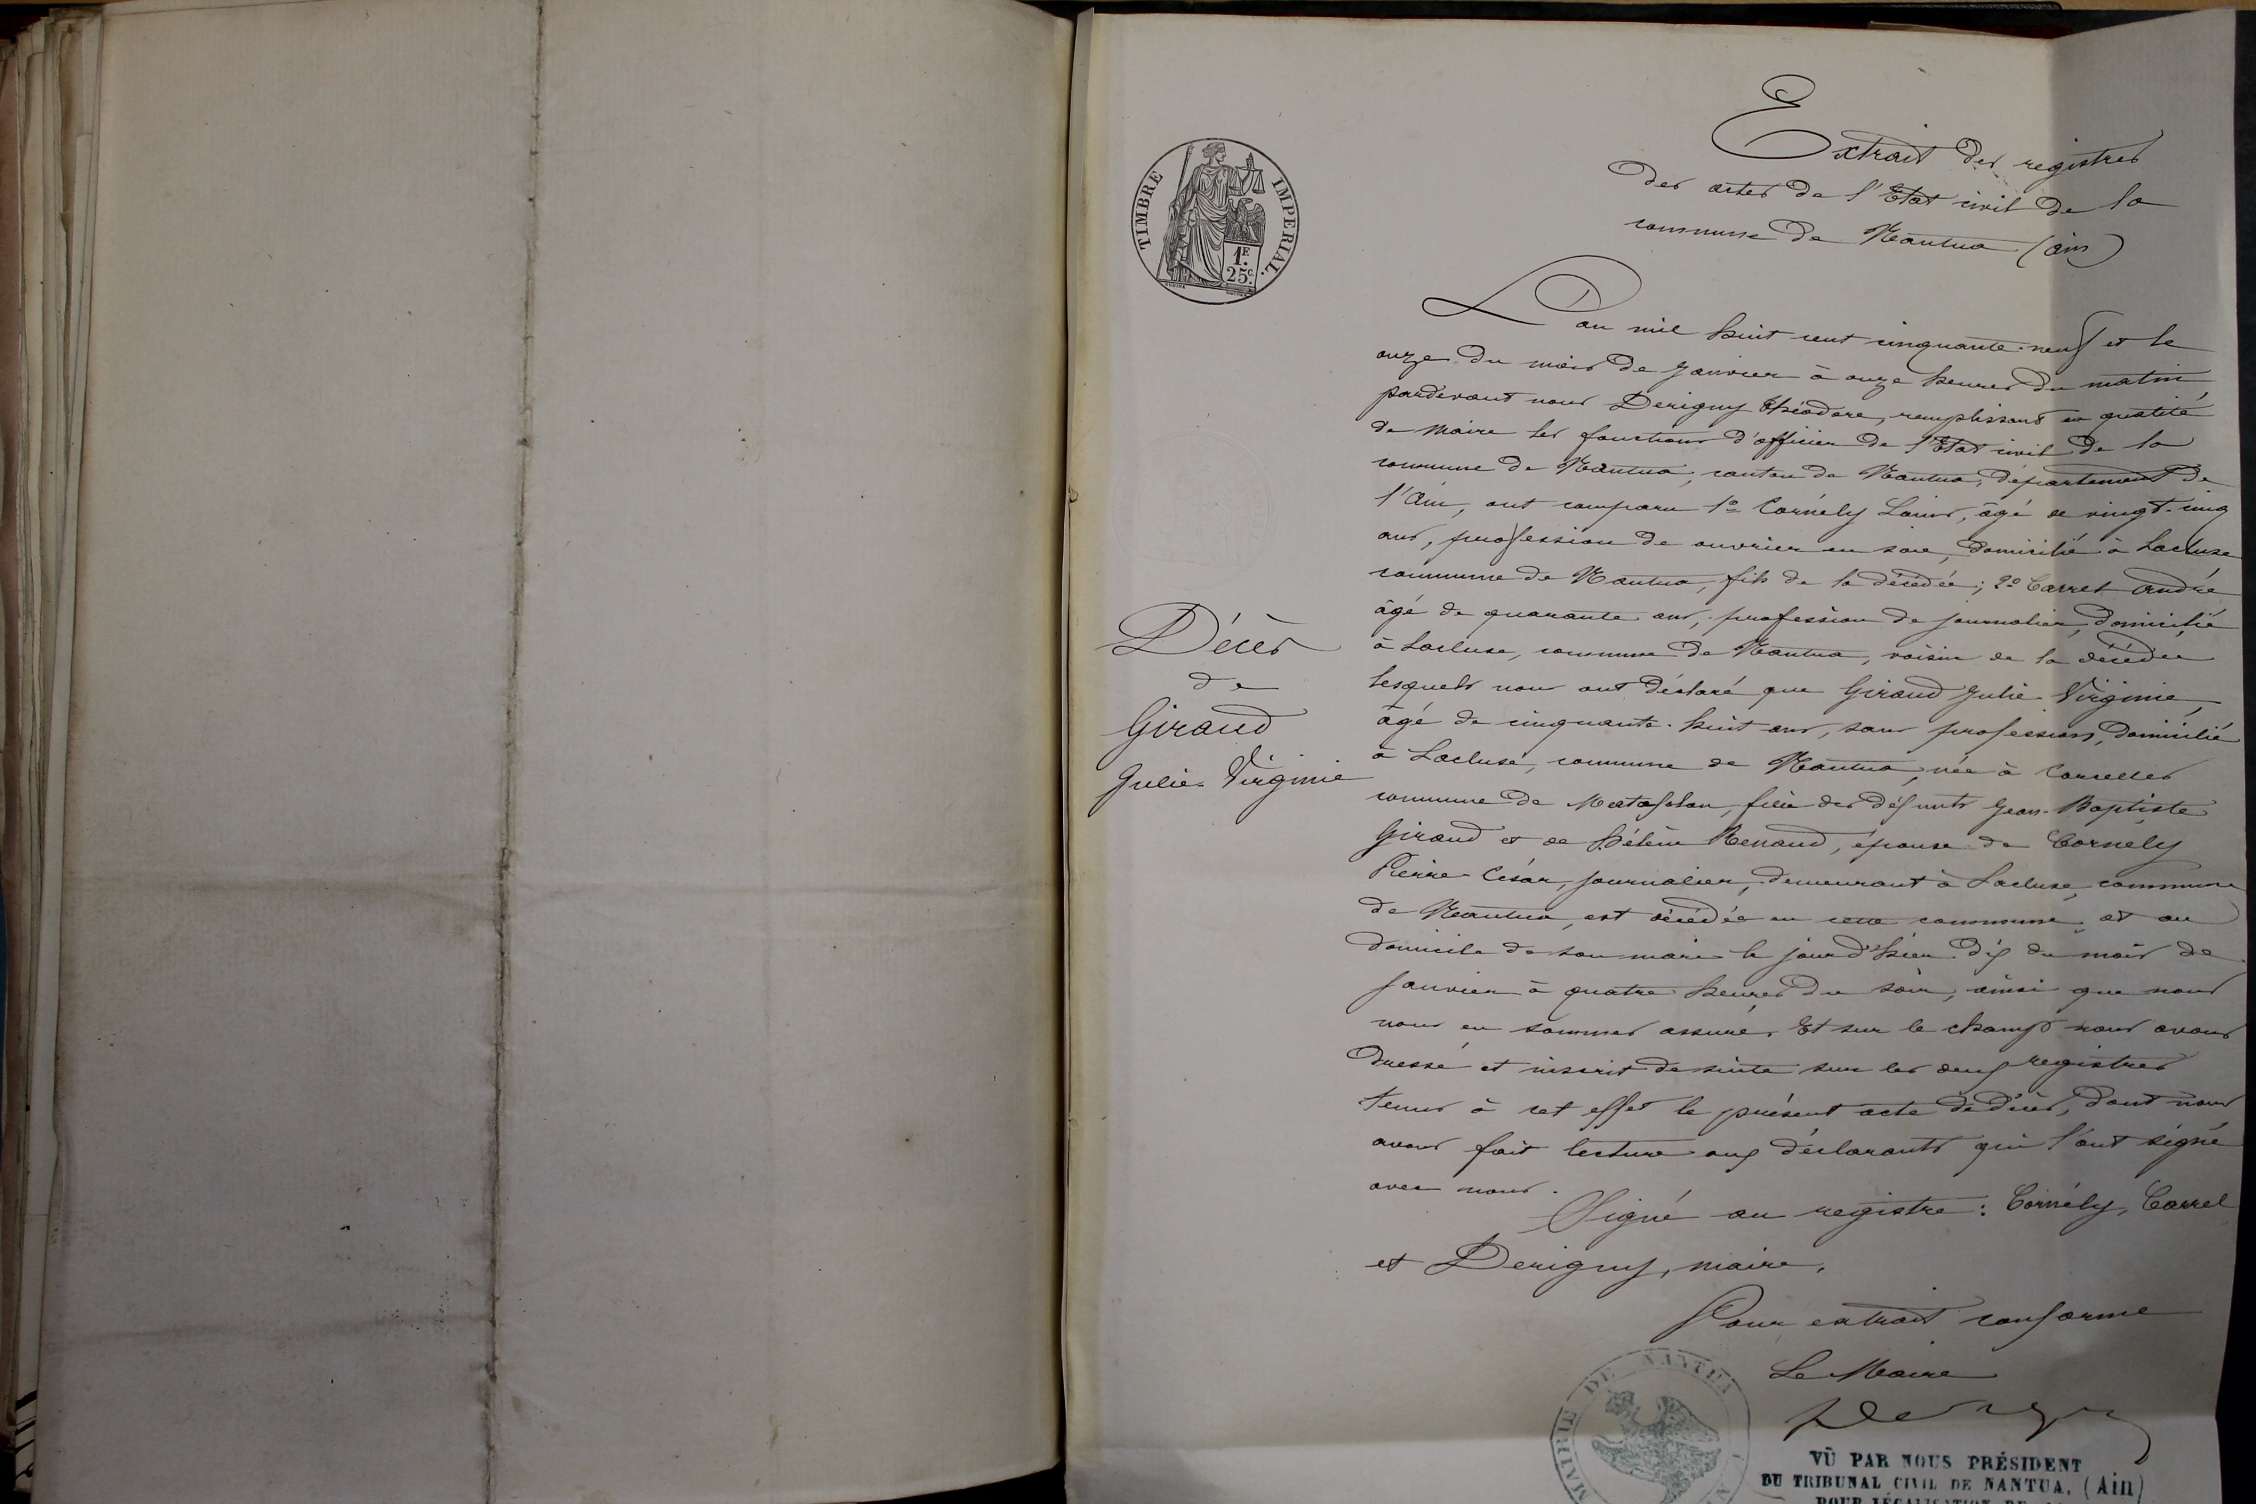 TIMBRE IMPERIAL.
1F.
25c.
Extrait des registres
des actes de l'Etat civil de la
commune de Nantua (ain)
L'an mil huit cent cinquante-neuf et le
onze du mois de janvier à onze heures du matin,
pardevant nous Derigny Théodore, remplissant en qualité
de Maire les fonctions d'officier de l'Etat civil de la
commune de Nantua, canton de Nantua, département de
l'Ain, ont comparu 1º Cornély Louis, âgé de vingt-cinq
ans, profession de ouvrier en soie, domicilié à Lacluse
commune de Nantua, fils de la décédée; 2º Carrel André
âgé de quarante ans, profession de journalier, domicilié
à Lacluse, commune de Nantua, voisin de la décédée
lesquels nous ont déclaré que Giraud Julie Virginie,
âgé de cinquante-huit ans, sans profession, domicilié
à Lacluse, commune de Nantua, née à Corcelles
commune de Matafelon, fille des défunts Jean-Baptiste
Giraud et de Hélène Renaud, épouse de Cornély
Pierre-César, journalier, demeurant à Lacluse, commune
de Nantua, est décédée en cette commune et au
domicile de son mari le jour d'hier dix du mois de
janvier à quatre heures du soir, ainsi que nous
nous en sommes assuré. Et sur le champ nous avons
dressé et inscrit de suite sur les deux registres
tenus à cet effet le présent acte de décès, dont nous
avons fait lecture aux déclarants qui l'ont signé
avec nous.
Signé au registre: Cornély, Carrel
et Derigny, maire.
Décès
de
Giraud
Julie-Virginie
Pour extrait conforme
Le Maire
Derigny
MAIRIE DE NANTUA
VÛ PAR NOUS PRÉSIDENT
DU TRIBUNAL CIVIL DE NANTUA, (Ain)
POUR LÉGALISATION DE